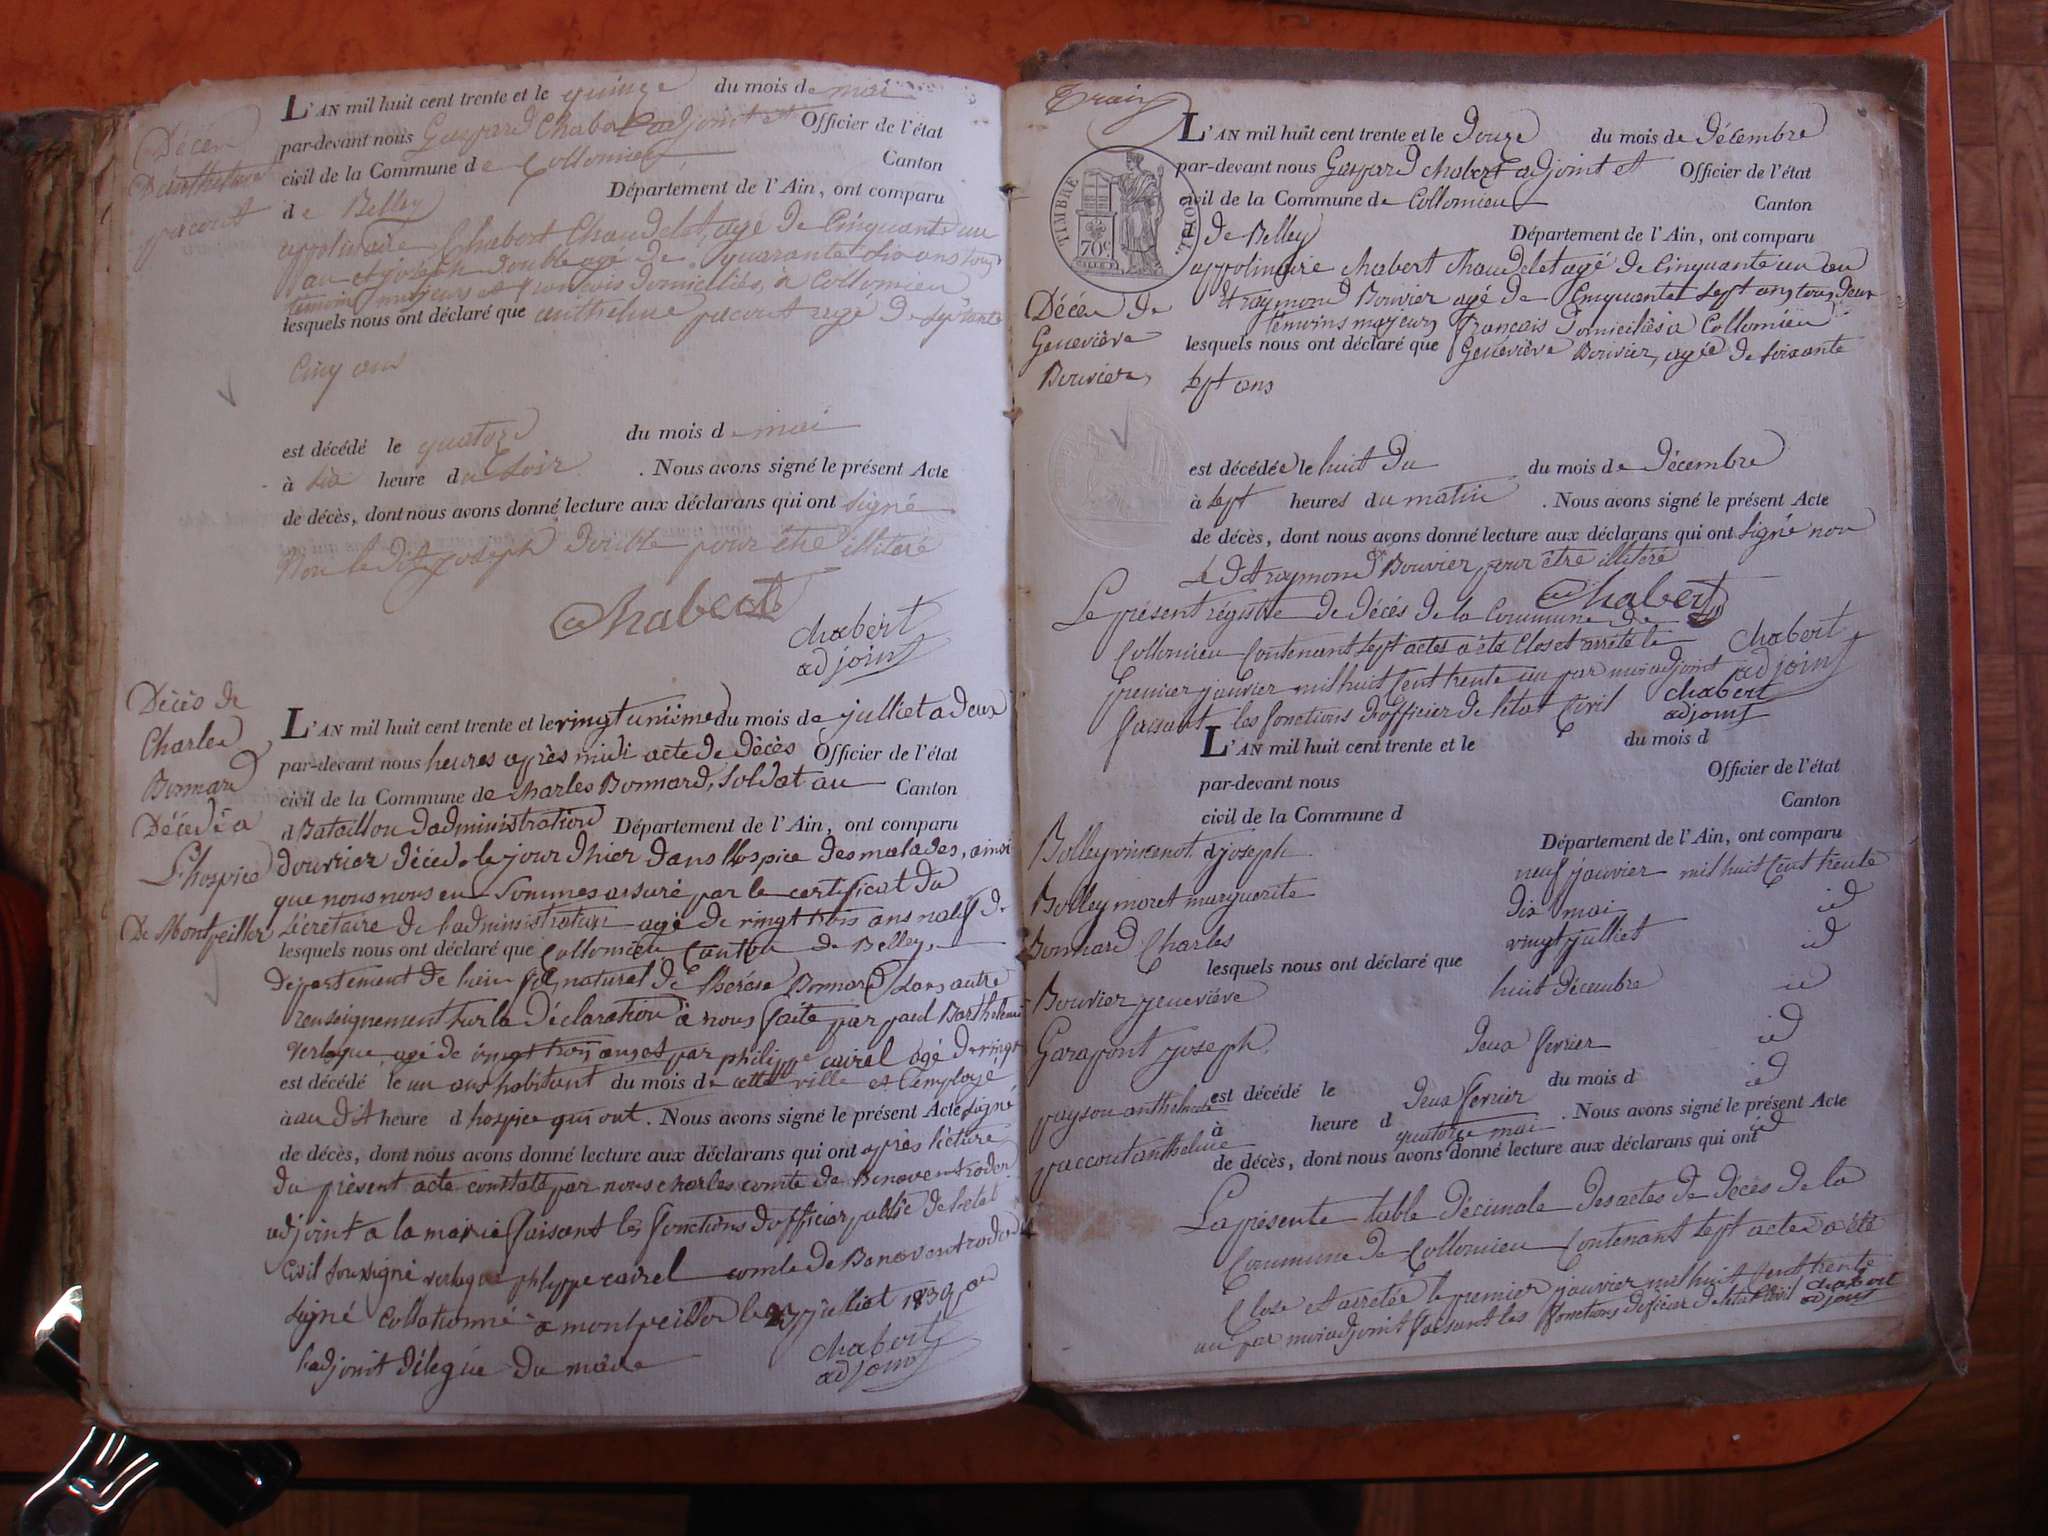 L'AN mil huit cent trente et le quinze du mois de mai
par-devant nous Gaspard Chabert adjoint et Officier de l'état
civil de la Commune de Collomieu Canton
de Belley Département de l'Ain, ont comparu
appolinaire Chabert Chaudelet, agé de Cinquante un
an et joseph double agé de quarante six ans tous
temoins majeurs et francois domiciliés, a Collomieu
lesquels nous ont déclaré que anthelme pacout agé de
Cinq ans
Décen
Danthelme
pacout
est décédé le quatorze du mois de mai
à six heure du soir . Nous avons signé le présent Acte
de décès, dont nous avons donné lecture aux déclarans qui ont signé
Non le dit joseph double pour être illiteré
Chabert
chabert
adjoint
Décès de
Charles
Bonnard
Décédé a
L'hospice
De Montpeiller
L'AN mil huit cent trente et le vingt unième du mois de julliet a deux
par-devant nous heures après midi acte de décès Officier de l'état
civil de la Commune de charles Bonnard, soldat au Canton
d Bataillon dadministration Département de l'Ain, ont comparu
douvrier décédé le jour dhier dans lhospice des malades, ainsi
que nous nous en sommes assuré par le certificat du
sécrétaire de l'administration agé de vingt trois ans natif de
lesquels nous ont déclaré que Collomieu Canton de Belley,
département de lain fils naturel de thérése Bonnard sans autre
renseignement sur la déclaration à nous faite par paul Barthelemi
verlaque agé de vingt trois ans et par philippe cairel agé de vingt
est décédé le un ans habitant du mois de cette ville et employé
à au dit heure d hospice qui ont . Nous avons signé le présent Acte signé
de décès, dont nous avons donné lecture aux déclarans qui ont après lecture
du présent acte constaté par nous charles comte de
adjoint a la mairie faisant les fonctions dofficier public de letat
civil soussigné verlaque phlyppe cairel comte de
signé collationné a montpeiller le julliet
l'adjoint délégué du maire
chabert
adjoint
TIMBRE ROYAL
70c
L'AN mil huit cent trente et le douze du mois de décembre
par-devant nous Gaspard chabert adjoint et Officier de l'état
civil de la Commune de Collomieu Canton
de Belley Département de l'Ain, ont comparu
appolinaire chabert chaudelet agé de Cinquante un an
et raymond Bouvier agé de Cinquante sept ans tous deux
témoins majeurs français domiciliés a Collomieu
lesquels nous ont déclaré que Geneviève Bouvier, agée de soixante
sept ans
Décen de
Geneviève
Bouvier
est décédée le huit du du mois de décembre
à sept heures du matin . Nous avons signé le présent Acte
de décès, dont nous avons donné lecture aux déclarans qui ont signé non
Le dit raymond Bouvier pour être illiteré
Chabert
Le présent régistre de décès de la Commune de
Collomieu Contenant sept actes a été Clos et arreté le
premier janvier mil huit Cent trente un par moi adjoint
faisant les fonctions dofficier de letat Civil
chabert
adjoint
chabert
adjoint
L'AN mil huit cent trente et le du mois d
par-devant nous Officier de l'état
civil de la Commune d Canton
Département de l'Ain, ont comparu
Bolley vincent joseph neuf janvier mil huit Cent trente
Bolley moret marguerite dix mai id
Bonnard Charles vingt julliet id
lesquels nous ont déclaré que
Bouvier geneviève huit décembre id
Garapont joseph deux fevrier id
est décédé le du mois d
payson anthelme deux fevrier id
à heure d . Nous avons signé le présent Acte
paccout anthelme quatorze mai id
de décès, dont nous avons donné lecture aux déclarans qui ont
La présente table décimale des actes de décès de la
Commune de Collomieu Contenant sept actes a été
Close et arretée le premier janvier mil huit Cent trente
un par moi adjoint faisant les fonctions doficier de létat Civil
chabert
adjoint